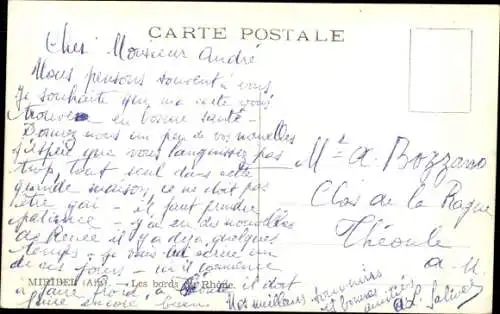 CARTE POSTALE
Cher Monsieur André
Nous pensons souvent à vous
Je souhaite que ma carte vous
trouve en bonne santé -
Donnez nous un peu de vos nouvelles
J'espère que vous languissez pas
trop, tout seul dans cette
grande maison, ce ne doit pas
être gai - il faut prendre
patience - j'ai eu des nouvelles
de Renée il y a déjà quelques
temps - je vais lui écrire un
de ces jours -
à faire froid, il doit
faire encore
MIRIBEL (AIN). — Les bords du Rhône.
Nos meilleurs souvenirs
et bonnes amitiés
Mr A. Bozzano
Clos de la Raque
Théoule
A. M.